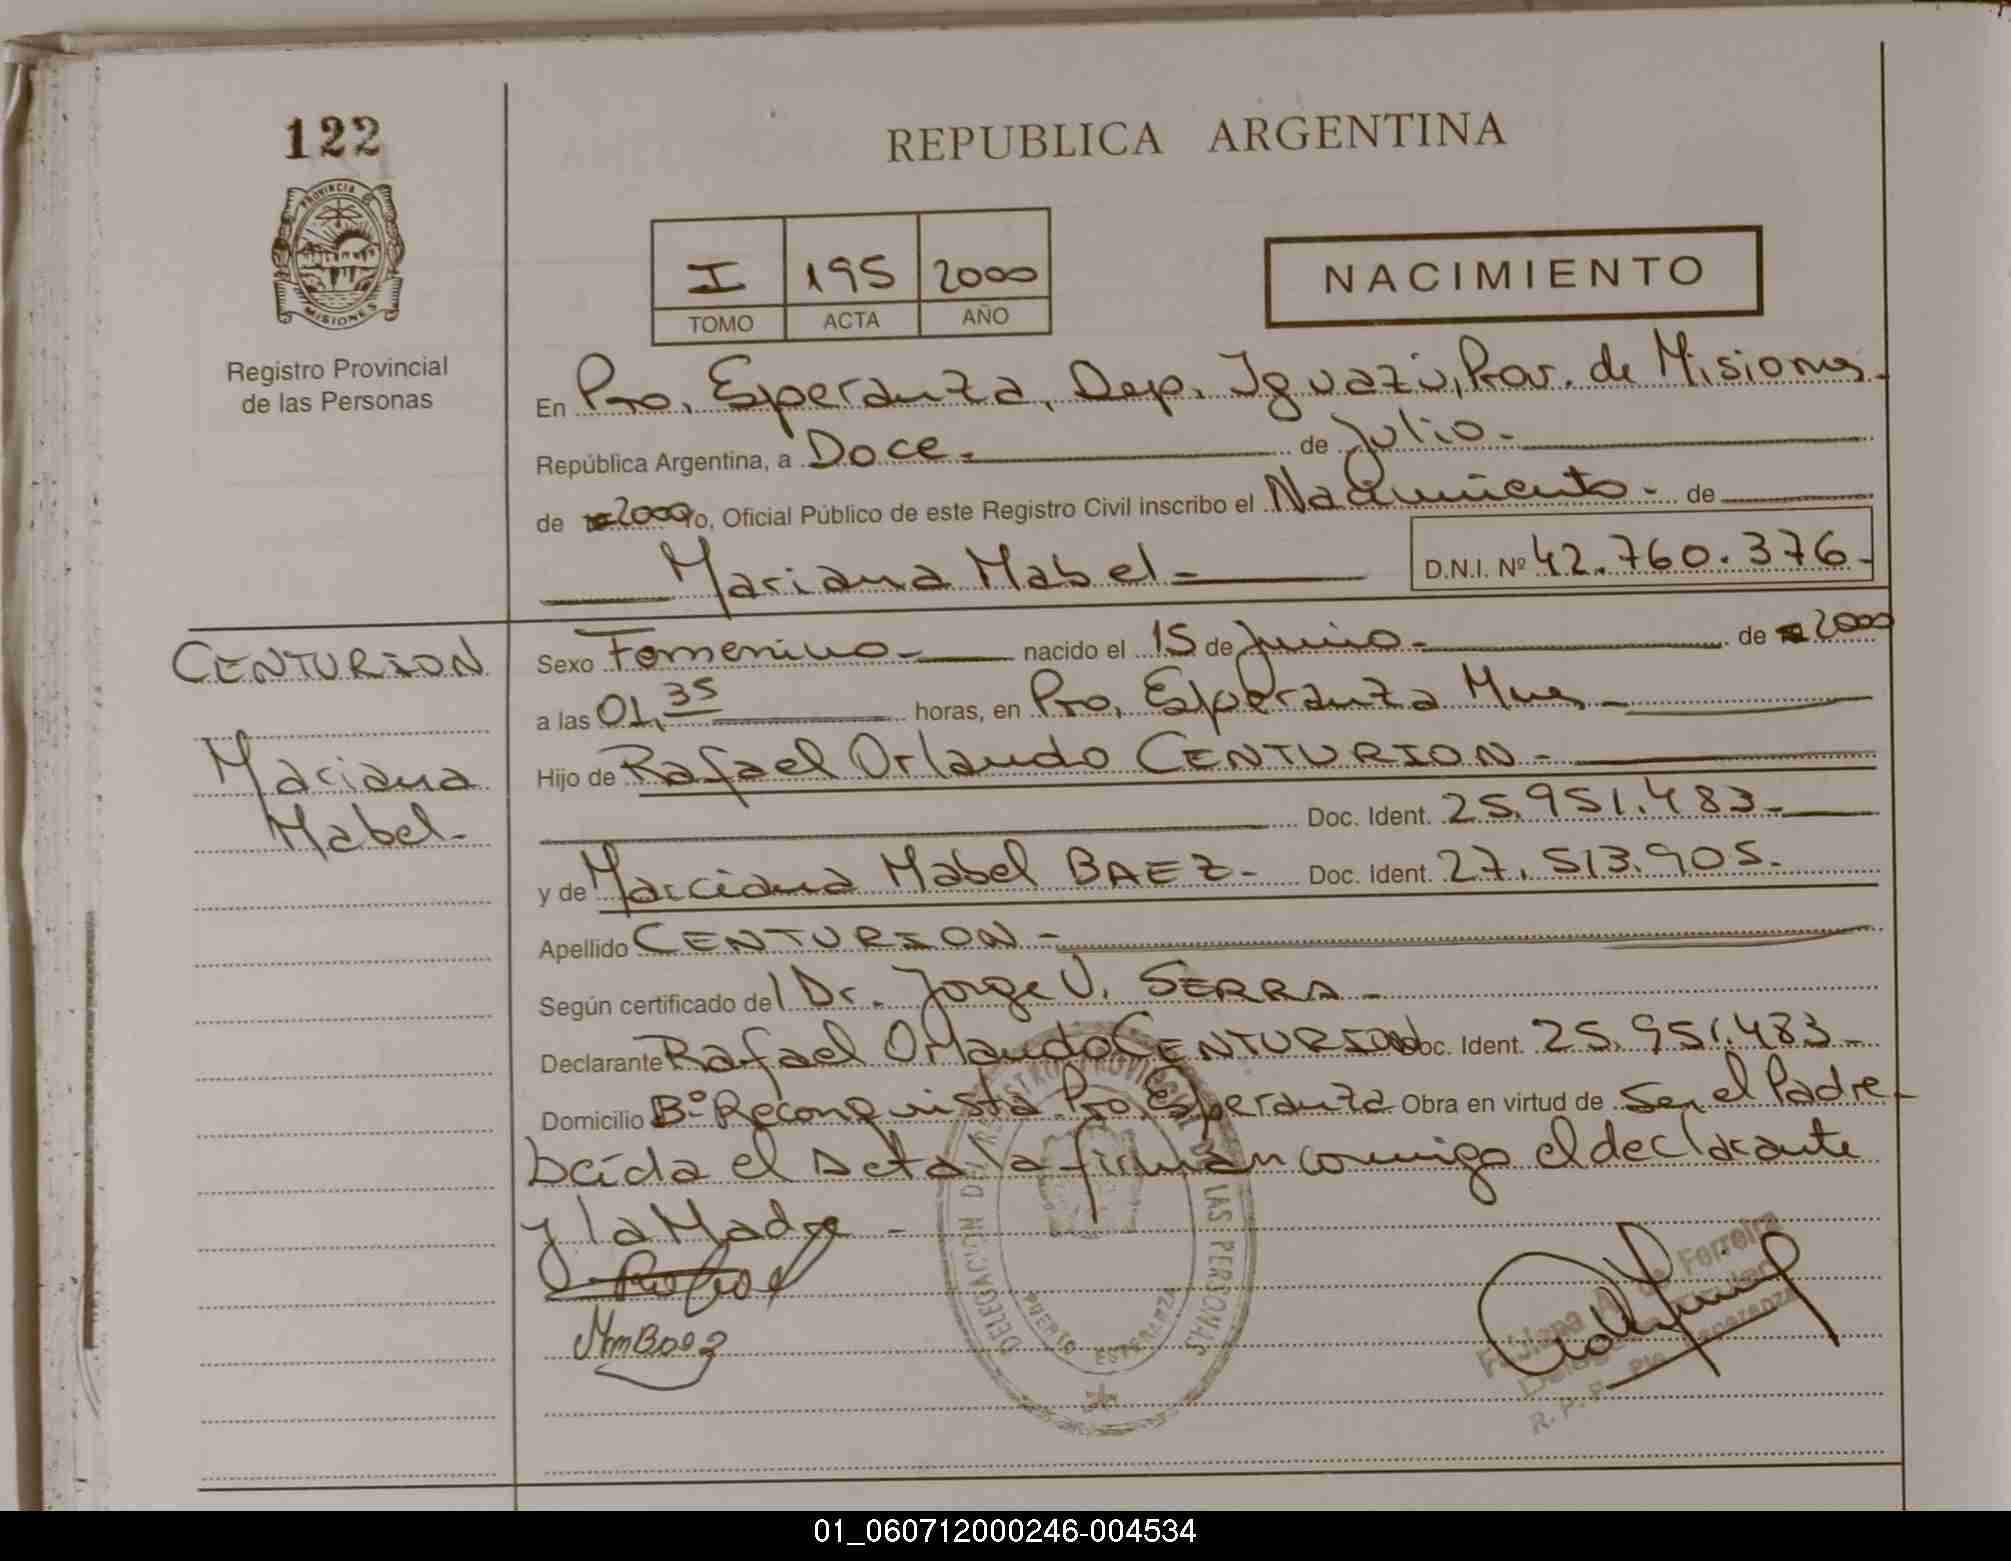 122
PROVINCIA
MISIONES
Registro Provincial
de las Personas
REPUBLICA ARGENTINA
I 195 2000
TOMO ACTA AÑO
NACIMIENTO
En Pto. Esperanza, Dep. Iguazú, Prov. de Misiones.
República Argentina, a Doce.- de Julio.-
de 2000 Yo, Oficial Público de este Registro Civil inscribo el Nacimiento - de
Mariana Mabel - D.N.I. Nº 42.760.376.
CENTURION
Mariana
Mabel-
Sexo Femenino - nacido el 15 de Junio - de 2000
a las 01,35 horas, en Pto. Esperanza Mnes -
Hijo de Rafael Orlando CENTURION -
Doc. Ident. 25.951.483-
y de Marciana Mabel BAEZ - Doc. Ident. 27.513.905.
Apellido CENTURION -
Según certificado del Dr. Jorge V. SERRA -
Declarante Rafael Orlando CENTURION Doc. Ident. 25.951.483-
Domicilio Bº Reconquista Pto. Esperanza Obra en virtud de ser el Padre-
Leída el Acta la firman conmigo el declarante
y la Madre -
MmBaez
DELEGACION REGISTRO PROVINCIAL DE LAS PERSONAS
PUERTO ESPERANZA
Fabiana A. de Ferreira
Titular
R.P.P. Pto. Esperanza
01_060712000246-004534